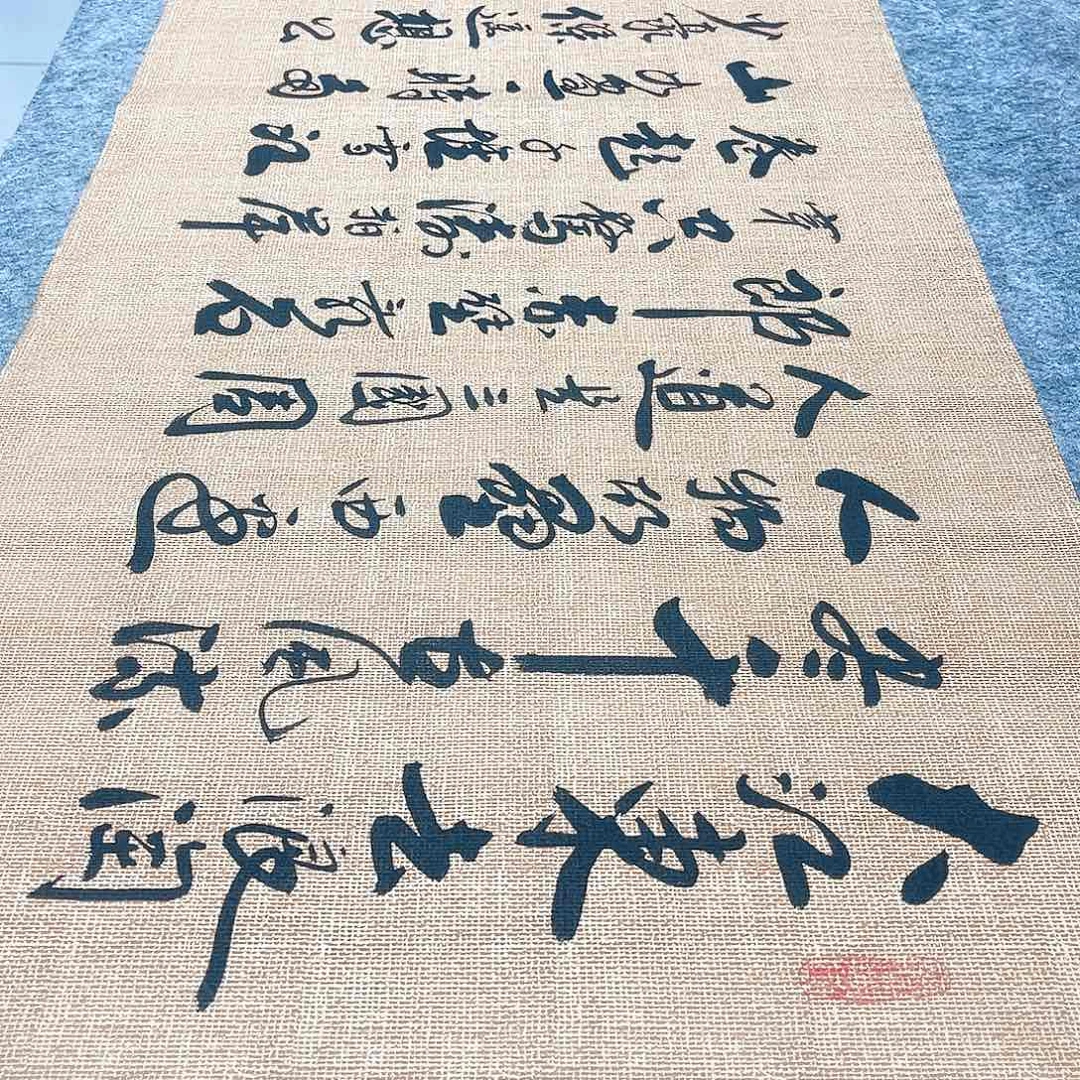 大江東去浪淘
尽千古風流
人物故壘西邊
人道是三國周
郎赤壁亂石
穿空驚濤拍岸
卷起千堆雪江
山如畫一時多
少豪傑遙想公